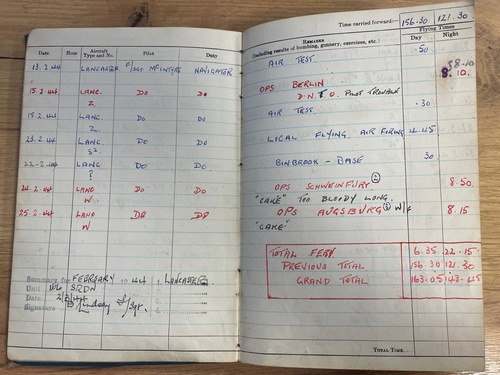 Date Hour Aircraft Type and No. Pilot Duty
13.2.44 LANCASTER F/SGT McINTYRE NAVIGATOR
15.2.44 LANC. Z. DO DO
15.2.44 LANC. Z. DO DO
23.2.44 LANC. DO DO
22-2-44 LANC ? DO DO
24.2.44 LANC W. DO DO
25.2.44 LANC W DO DO
Summary for FEBRUARY 1944. LANCASTER
Unit SQDN
Date
Signature
Time carried forward:— 156.30 121.30
REMARKS
(including results of bombing, gunnery, exercises, etc.)
Flying Times
Day Night
AIR TEST .50
OPS BERLIN 8.10.
D.N.T.O.
AIR TEST .30
LOCAL FLYING AIR FIRING 4.45
BINBROOK - BASE 30
OPS SCHWEINFURT 8.50
"CAKE" TOO BLOODY LONG.
OPS AUGSBURG 8.15
"CAKE"
TOTAL FEBY 6.35 22.15
PREVIOUS TOTAL 156.30 121.30
GRAND TOTAL 163.05 143.45
TOTAL TIME